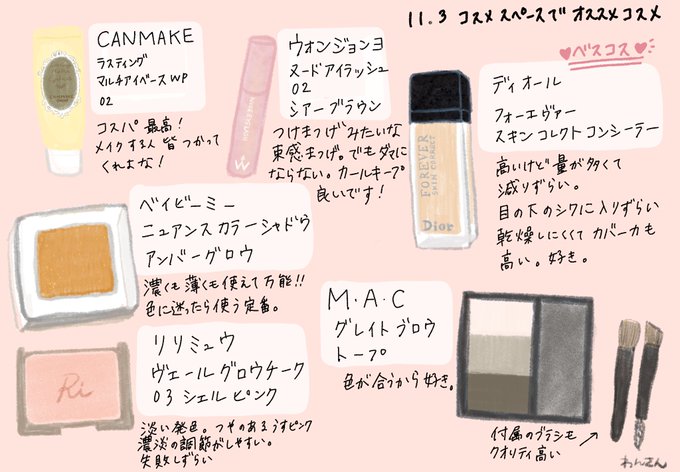 11.3 コスメスペースで オススメコスメ
ベスコス
CANMAKE
ラスティング
マルチアイベース WP
02
コスパ 最高！
メイクする人 皆つかって
くれよな！
ウォンジョンヨ
ヌードアイラッシュ
02
シアーブラウン
つけまつげみたいな
束感まつげ。でもダマに
ならない。カールキープ
良いです！
ディオール
フォーエヴァー
スキンコレクトコンシーラー
高いけど量が多くて
減りずらい。
目の下のシワに入りずらい
乾燥しにくくてカバー力も
高い。好き。
FOREVER
SKIN CORRECT
Dior
ベイビーミー
ニュアンスカラーシャドウ
アンバーグロウ
濃くも薄くも使えて万能!!
色に迷ったら使う定番。
M・A・C
グレイトブロウ
トープ
色が合うから好き。
付属のブラシも
クオリティ高い
リリミュウ
ヴェールグロウチーク
03 シェルピンク
淡い発色。つやのあるうすピンク
濃淡の調節がしやすい。
失敗しずらい
Ri
わんさん